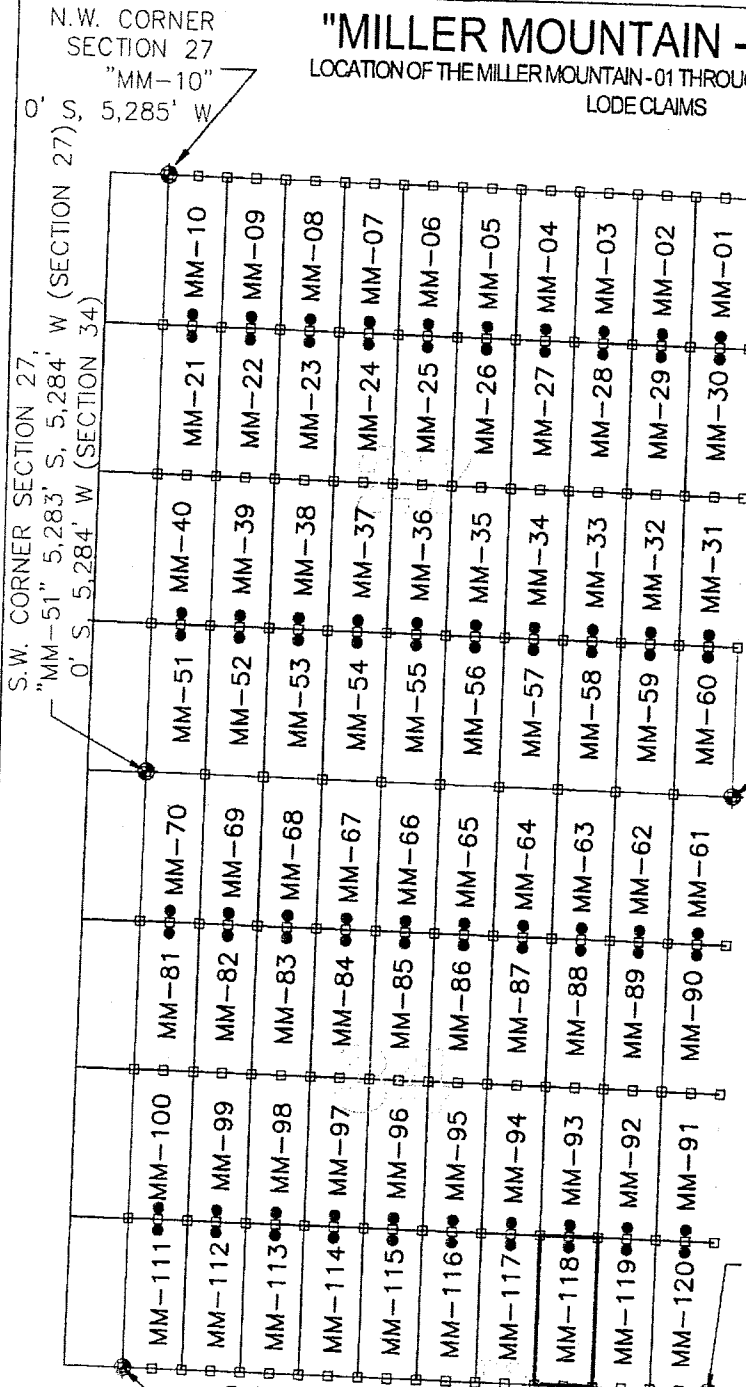 N.W. CORNER
SECTION 27
"MM-10"
0' S, 5,285' W
"MILLER MOUNTAIN -
LOCATION OF THE MILLER MOUNTAIN-01 THROU
LODE CLAIMS
S.W. CORNER SECTION 27,
"MM-51" 5,283' S, 5,284' W (SECTION 27)
0' S 5,284' W (SECTION 34)
MM-10
MM-09
MM-08
MM-07
MM-06
MM-05
MM-04
MM-03
MM-02
MM-01
MM-21
MM-22
MM-23
MM-24
MM-25
MM-26
MM-27
MM-28
MM-29
MM-30
MM-40
MM-39
MM-38
MM-37
MM-36
MM-35
MM-34
MM-33
MM-32
MM-31
MM-51
MM-52
MM-53
MM-54
MM-55
MM-56
MM-57
MM-58
MM-59
MM-60
MM-70
MM-69
MM-68
MM-67
MM-66
MM-65
MM-64
MM-63
MM-62
MM-61
MM-81
MM-82
MM-83
MM-84
MM-85
MM-86
MM-87
MM-88
MM-89
MM-90
MM-100
MM-99
MM-98
MM-97
MM-96
MM-95
MM-94
MM-93
MM-92
MM-91
MM-111
MM-112
MM-113
MM-114
MM-115
MM-116
MM-117
MM-118
MM-119
MM-120